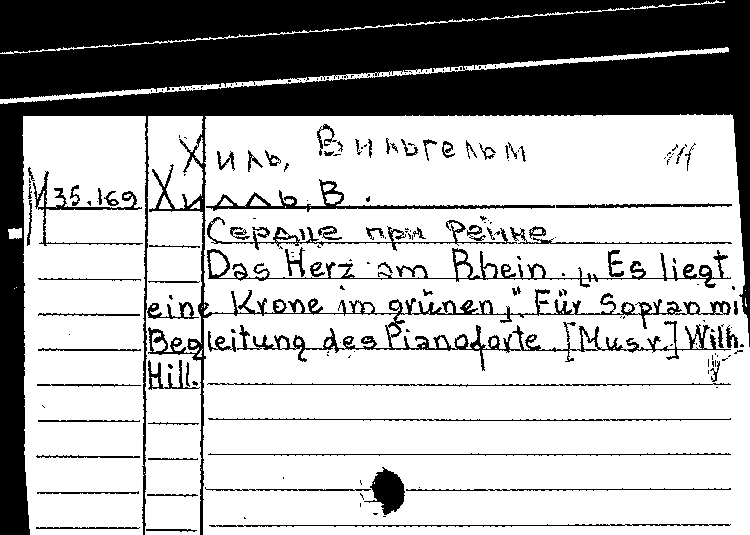 Хиль, Вильгельм
М 35.169 Хилль, В.
Сердце при Рейне
Das Herz am Rhein. „Es liegt
eine Krone im grünen". Für Sopran mit
Begleitung des Pianoforte [Mus.v.] Wilh.
Hill.